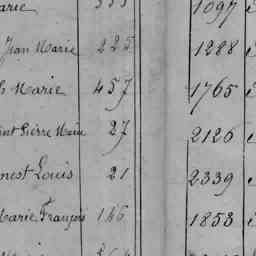 arie 555 1097
Jean Marie 225 1288
h Marie 457 1765
int Pierre Marie 27 2126
nest Louis 21 2339
Marie François 146 1853